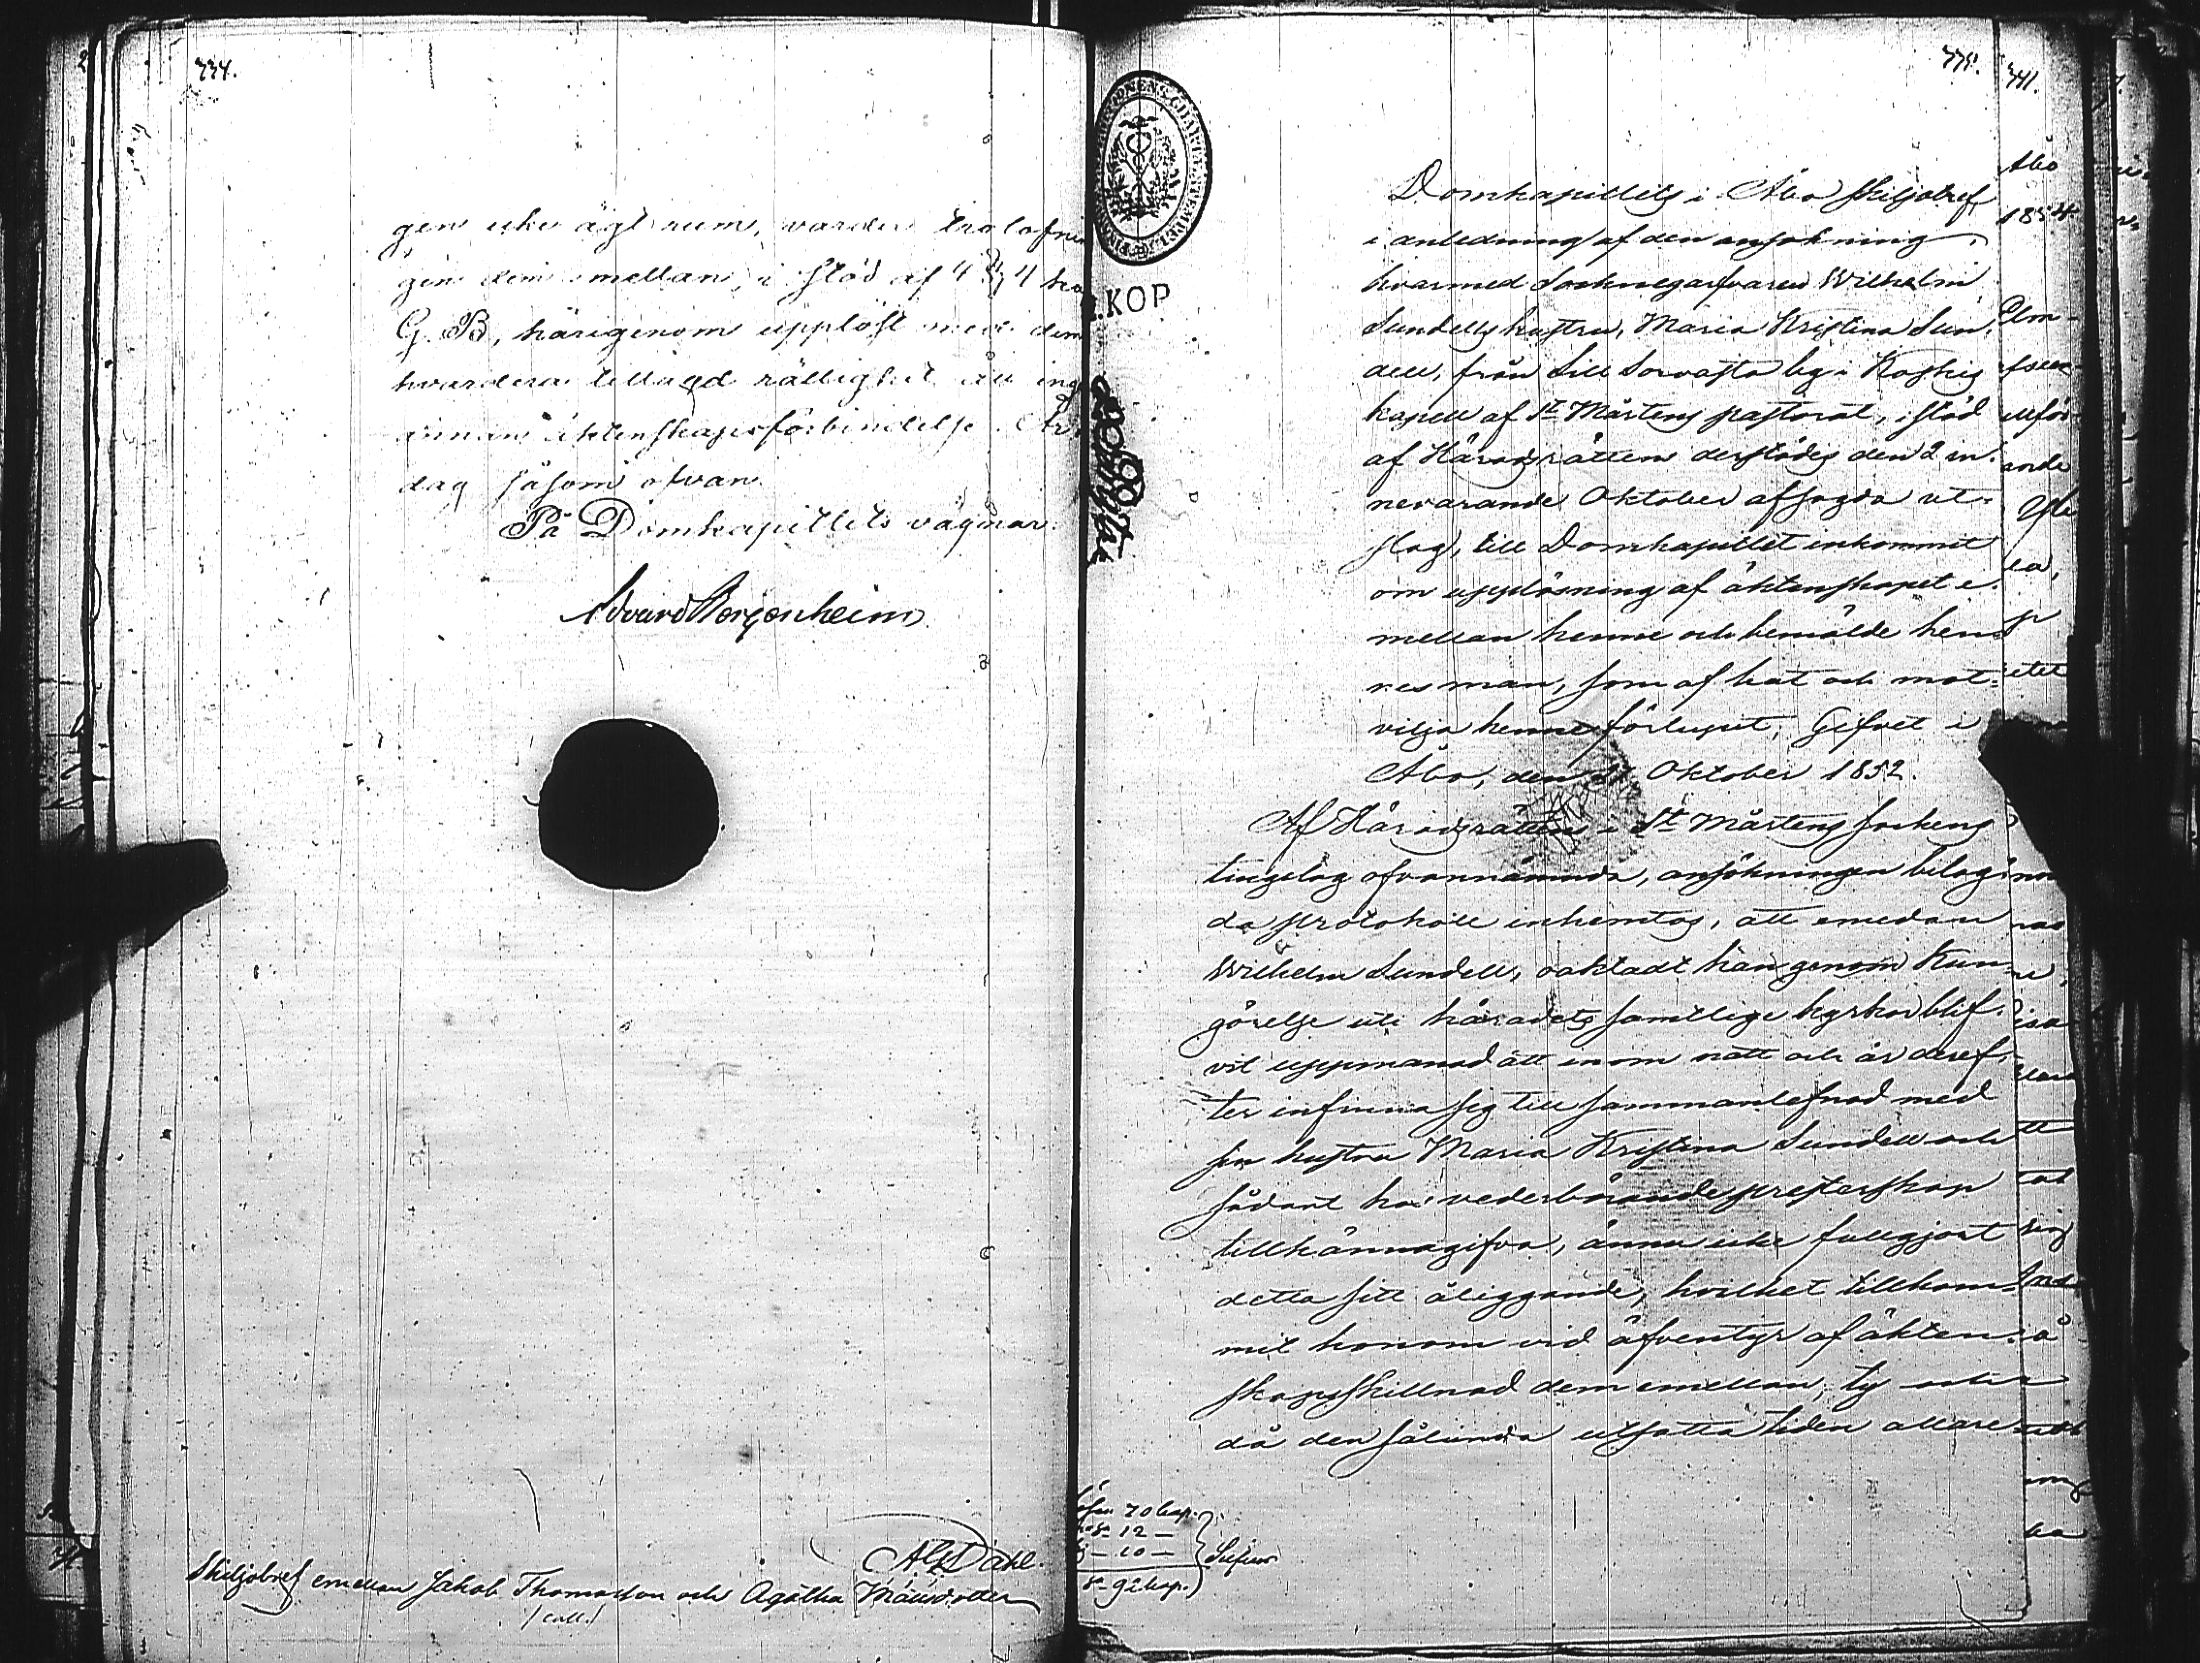 334.
gen icke ägt rum, varder trolofnin
gen dem emellan, i stöd af 4 § 4 ka
G. B, härigenom upplöst med dem
hvardera tillagd rättighet att ingå
annan äktenskapsförbindelse. År
dag såsom ofvan.
På Domkapitlets vägnar:
Edvard Bergenheim
Alf Dahl.
Skiljobref emellan Jakob Thomasson och Agatha Mattsdotter
/coll./
335.
KOP
Domkapitlets i Åbo skiljobref
i anledning af den ansökning,
hvarmed Socknegarfvaren Wilhelm
Sundells hustru, Maria Kristina Sun-
dell, från Sorvasto by i Koskis
kapell af St Mårtens pastorat, i stöd
af Häradsrättens derstädes den 2 in-
nevarande Oktober afsagda ut-
slag, till Domkapitlet inkommit
om upplösning af äktenskapet e-
mellan henne och bemälde hen-
nes man, som af hat och mot-
vilja henne förlupit; Gifvet i
Åbo, den 27 Oktober 1852.
Af Häradsrättens i St Mårtens sockens
tingslag ofvannämnda, ansökningen bilag-
da protokoll inhemtas, att emedan
Wilhelm Sundell, oaktadt han genom Kun-
görelse uti häradets samtlige kyrkor blif-
vit uppmanad att inom natt och år deref-
ter infinna sig till sammanlefnad med
sin hustru Maria Kristina Sundell och
sådant hos vederbörande presterskap
tillkännagifva, ännu icke fullgjort
detta sitt åliggande, hvilket tillkom-
mit honom vid äfventyr af äkten-
skapsskillnad dem emellan; ty och
då den sålunda utsatta tiden allare-
Lösen 70 kop.
12 —
10 —
Sr 92 kop.
341.
Åbo
1854